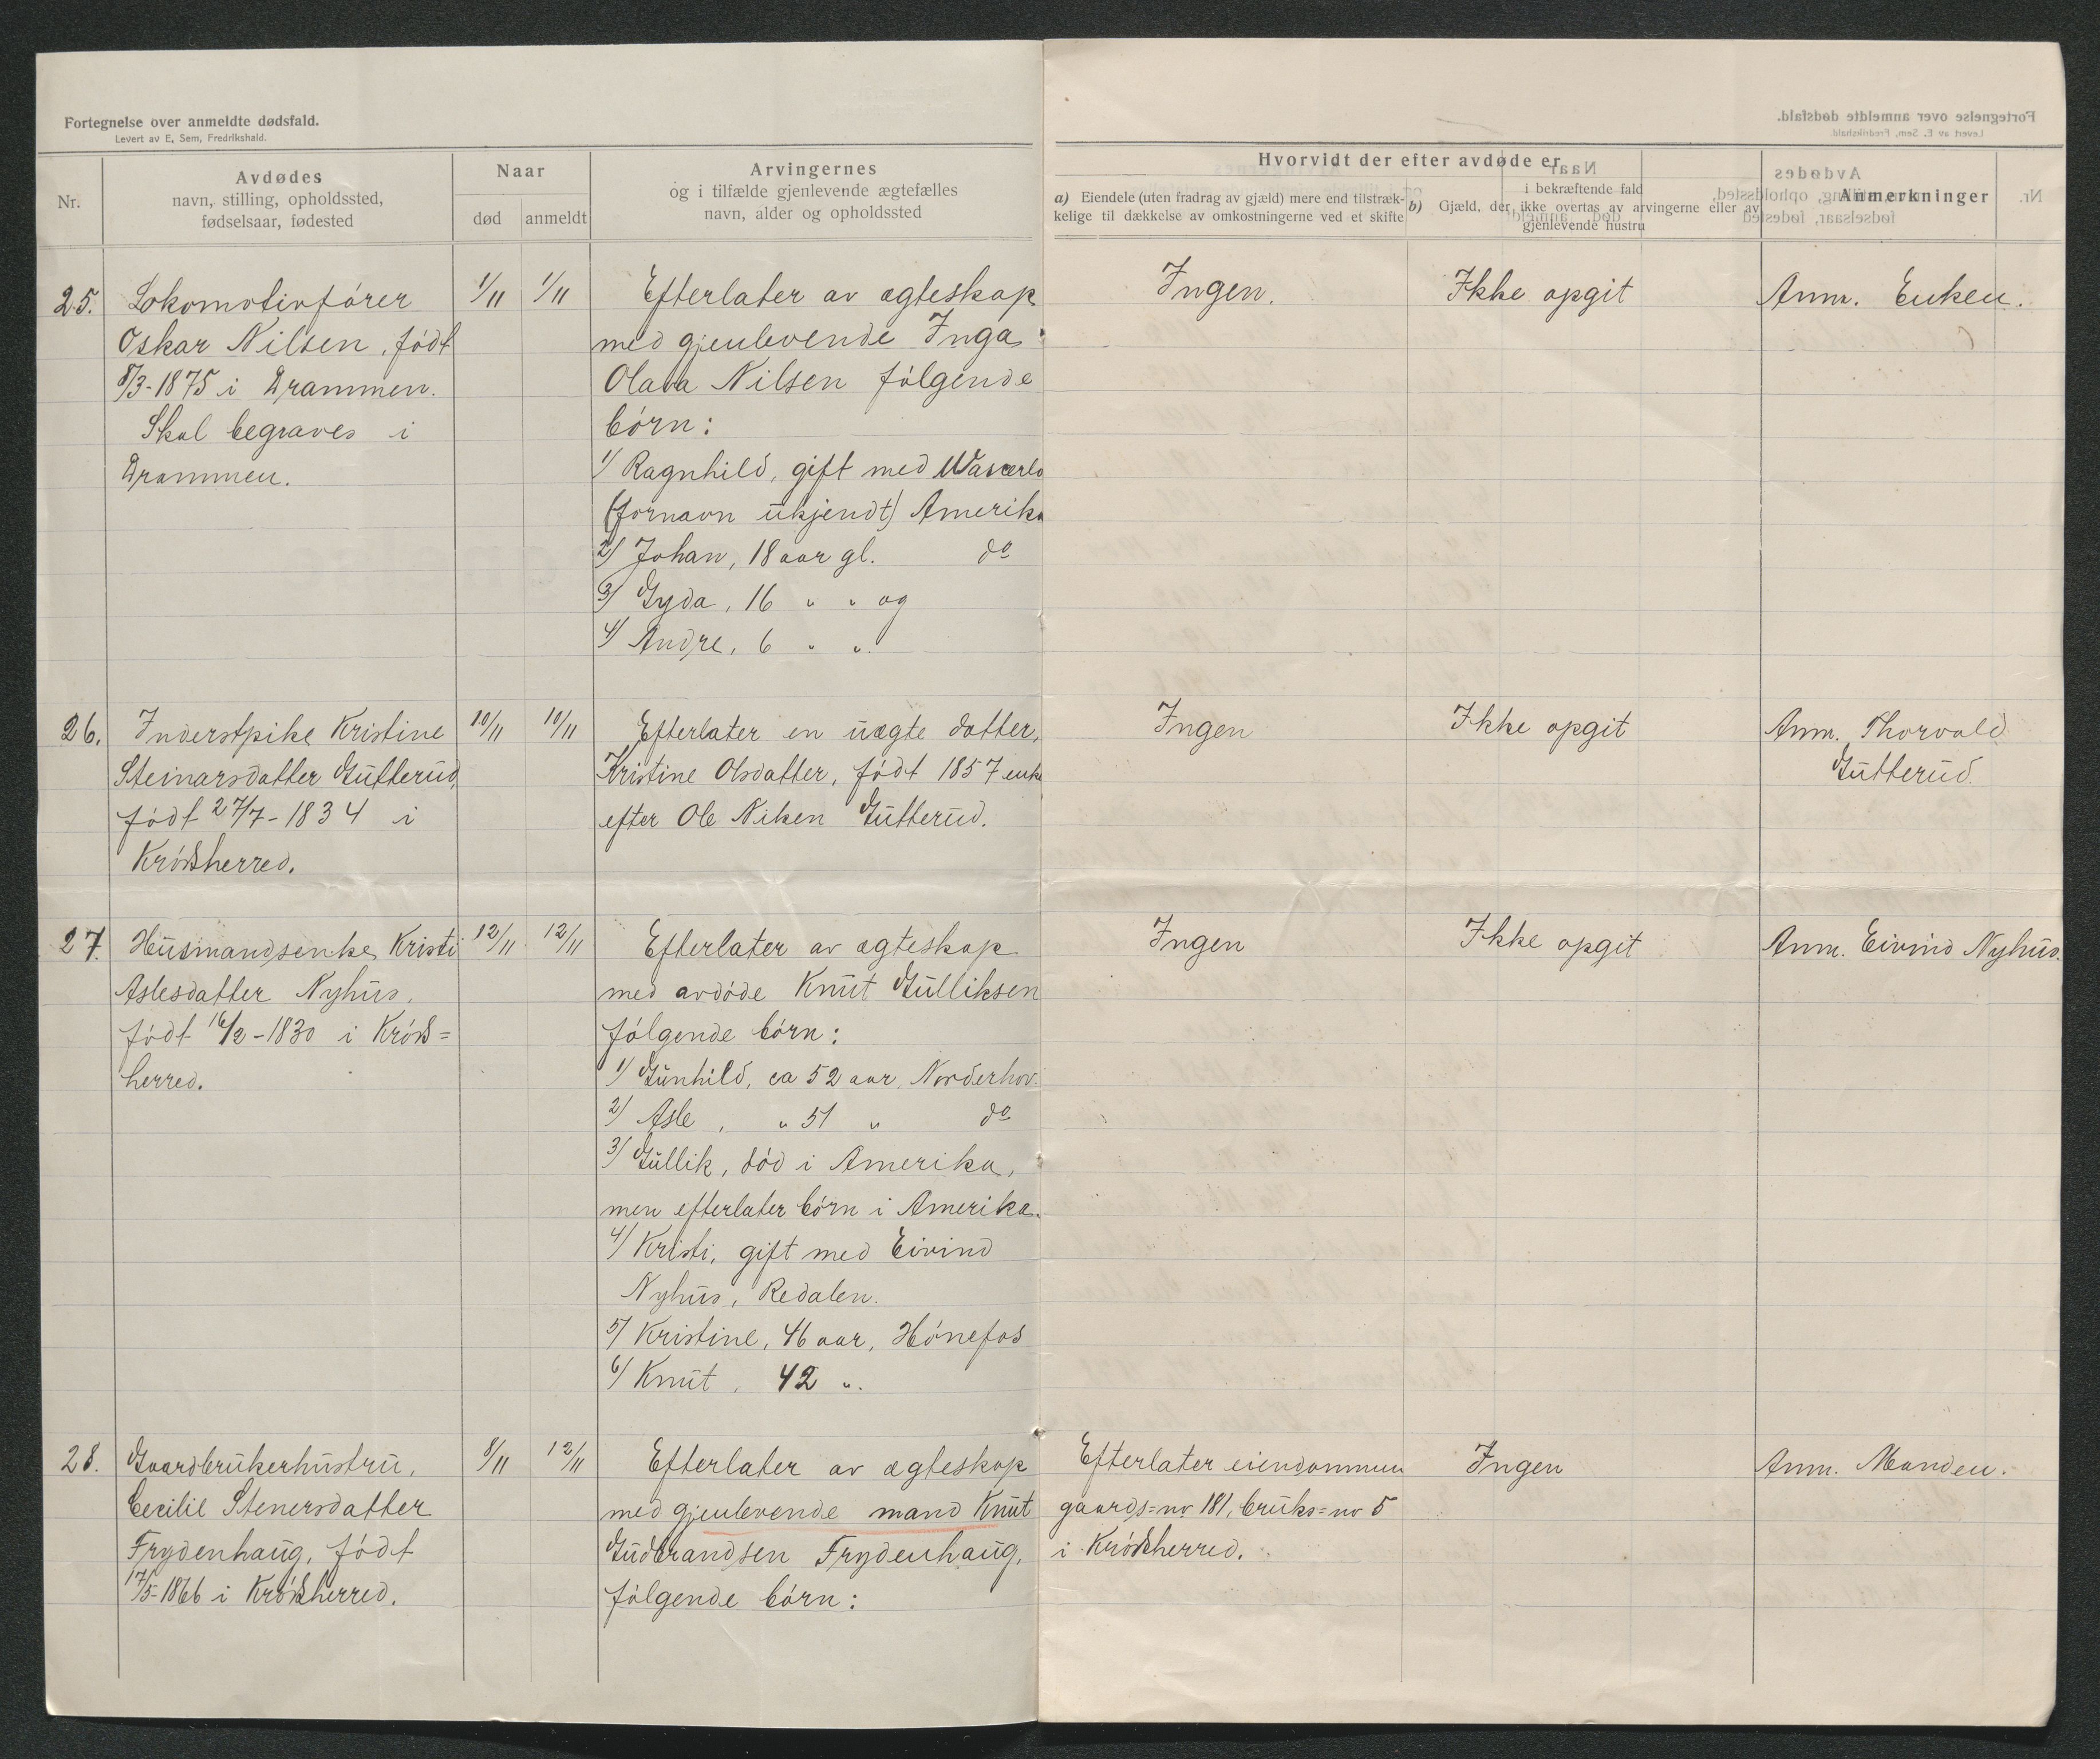 Fortegnelse over anmeldte dødsfald.
Levert av E. Sem, Fredrikshald.
Nr.
Avdødes
navn, stilling, opholdssted,
fødselsaar, fødested
Naar
død
anmeldt
Arvingernes
og i tilfælde gjenlevende ægtefælles
navn, alder og opholdssted
Hvorvidt der efter avdøde er
a) Eiendele (uten fradrag av gjæld) mere end tilstræk-
kelige til dækkelse av omkostningerne ved et skifte
i bekræftende fald
b) Gjæld, der ikke overtas av arvingerne eller av
gjenlevende hustru
Anmerkninger
25.
Lokomotivfører
Oskar Nilsen, født
8/3-1875 i Drammen.
Skal begraves i
Drammen.
1/11
1/11
Efterlater av ægteskap
med gjenlevende Inga
Olava Nilsen følgende
børn:
1/ Ragnhild, gift med
(fornavn ukjendt) Amerika
2/ Johan, 18 aar gl. do
3/ Gyda, 16 " " og
4/ Andre, 6 " ".
Ingen.
Ikke opgit
Anm. Enken.
26.
Inderstpike Kristine
Steinarsdatter Gutterud,
født 27/7-1834 i
Krødsherred.
10/11
10/11
Efterlater en uægte datter,
Kristine Olsdatter, født 1857 enke
efter Ole Nilsen Gutterud.
Ingen
Ikke opgit
Anm. Thorvald
Gutterud.
27.
Husmandsenke Kristi
Aslesdatter Nyhus,
født 16/2-1830 i Krøds=
herred.
12/11
12/11
Efterlater av ægteskap
med avdøde Knut Gulliksen
følgende børn:
1/ Gunhild, ca 52 aar, Norderhov.
2/ Asle, " 51 " do
3/ Gullik, død i Amerika,
men efterlater børn i Amerika.
4/ Kristi, gift med Eivind
Nyhus, Redalen.
5/ Kristine, 46 aar, Hønefos
6/ Knut, 42 ".
Ingen
Ikke opgit
Anm. Eivind Nyhus.
28.
Gaardbrukerhustru,
Cecilie Stenersdatter
Frydenhaug, født
17/5-1866 i Krødsherred.
8/11
12/11
Efterlater av ægteskap
med gjenlevende mand Knut
Gudbrandsen Frydenhaug,
følgende børn:
Efterlater eiendommen
gaards=nr 181, bruks=nr 5
i Krødsherred.
Ingen
Anm. Manden.